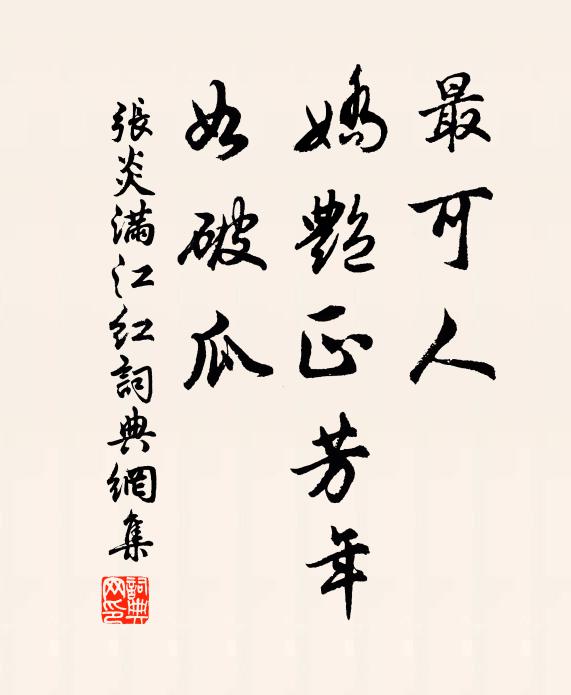 最可人
嬌艷正芳年
如破瓜
張炎滿江紅詞典網集
詞典网印